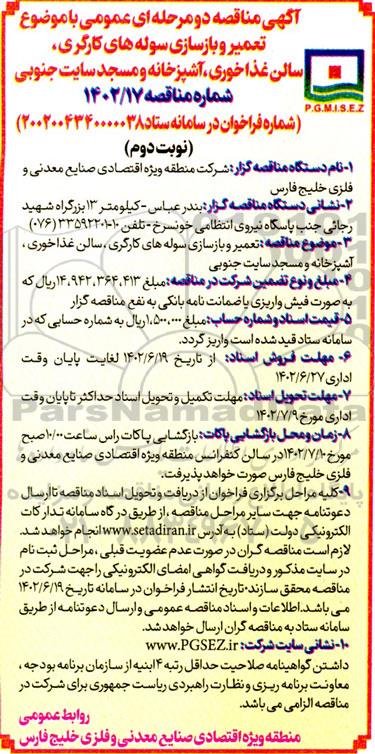 آگهی مناقصه دو مرحله ای عمومی با موضوع
تعمیر و بازسازی سوله های کارگری،
سالن غذاخوری، آشپزخانه و مسجد سایت جنوبی
شماره مناقصه ۱۴۰۲/۱۷
P.G.M.I.S.E.Z
(شماره فراخوان در سامانه ستاد ۲۰۰۲۰۰۴۳۴۰۰۰۰۰۳۸)
(نوبت دوم)
۱-نام دستگاه مناقصه گزار: شرکت منطقه ویژه اقتصادی صنایع معدنی و
فلزی خلیج فارس
۲-نشانی دستگاه مناقصه گزار: بندر عباس - کیلومتر ۱۳ بزرگراه شهید
رجائی جنب پاسگاه نیروی انتظامی خونسرخ - تلفن ۱۰-۳۳۵۹۲۲۰۱ (۰۷۶)
۳-موضوع مناقصه: تعمیر و بازسازی سوله های کارگری، سالن غذاخوری،
آشپزخانه و مسجد سایت جنوبی
۴-مبلغ و نوع تضمین شرکت در مناقصه: مبلغ ۱۴،۹۴۲،۳۶۴،۴۱۳ ریال که
به صورت فیش واریزی یا ضمانت نامه بانکی به نفع مناقصه گزار
۵-قیمت اسناد و شماره حساب: مبلغ ۱،۵۰۰،۰۰۰ ریال به شماره حسابی که در
سامانه ستاد قید شده است واریز گردد.
۶- مهلت فروش اسناد: از تاریخ ۱۴۰۲/۶/۱۹ لغایت پایان وقت
اداری ۱۴۰۲/۶/۲۷
۷-مهلت تحویل اسناد: مهلت تکمیل و تحویل اسناد حداکثر تا پایان وقت
اداری مورخ ۱۴۰۲/۷/۹
۸-زمان و محل بازگشایی پاکات: بازگشایی پاکات راس ساعت ۱۰/۰۰ صبح
مورخ ۱۴۰۲/۷/۱۰ در سالن کنفرانس منطقه ویژه اقتصادی صنایع معدنی و
فلزی خلیج فارس صورت خواهد پذیرفت.
۹-کلیه مراحل برگزاری فراخوان از دریافت و تحویل اسناد مناقصه تا ارسال
دعوتنامه جهت سایر مراحل مناقصه، از طریق درگاه سامانه تدارکات
الکترونیکی دولت (ستاد) به آدرس www.setadiran.ir انجام خواهد شد.
لازم است مناقصه گران در صورت عدم عضویت قبلی، مراحل ثبت نام
در سایت مذکور و دریافت گواهی امضای الکترونیکی را جهت شرکت در
مناقصه محقق سازند. تاریخ انتشار فراخوان در سامانه تاریخ ۱۴۰۲/۶/۱۹
می باشد. اطلاعات و اسناد مناقصه عمومی و ارسال دعوتنامه از طریق
سامانه ستاد به مناقصه گران ارسال خواهد شد.
۱۰-نشانی سایت شرکت: www.PGSEZ.ir
داشتن گواهینامه صلاحیت حداقل رتبه ۴ ابنیه از سازمان برنامه بودجه،
معاونت برنامه ریزی و نظارت راهبردی ریاست جمهوری برای شرکت در
مناقصه الزامی می باشد.
روابط عمومی
منطقه ویژه اقتصادی صنایع معدنی و فلزی خلیج فارس